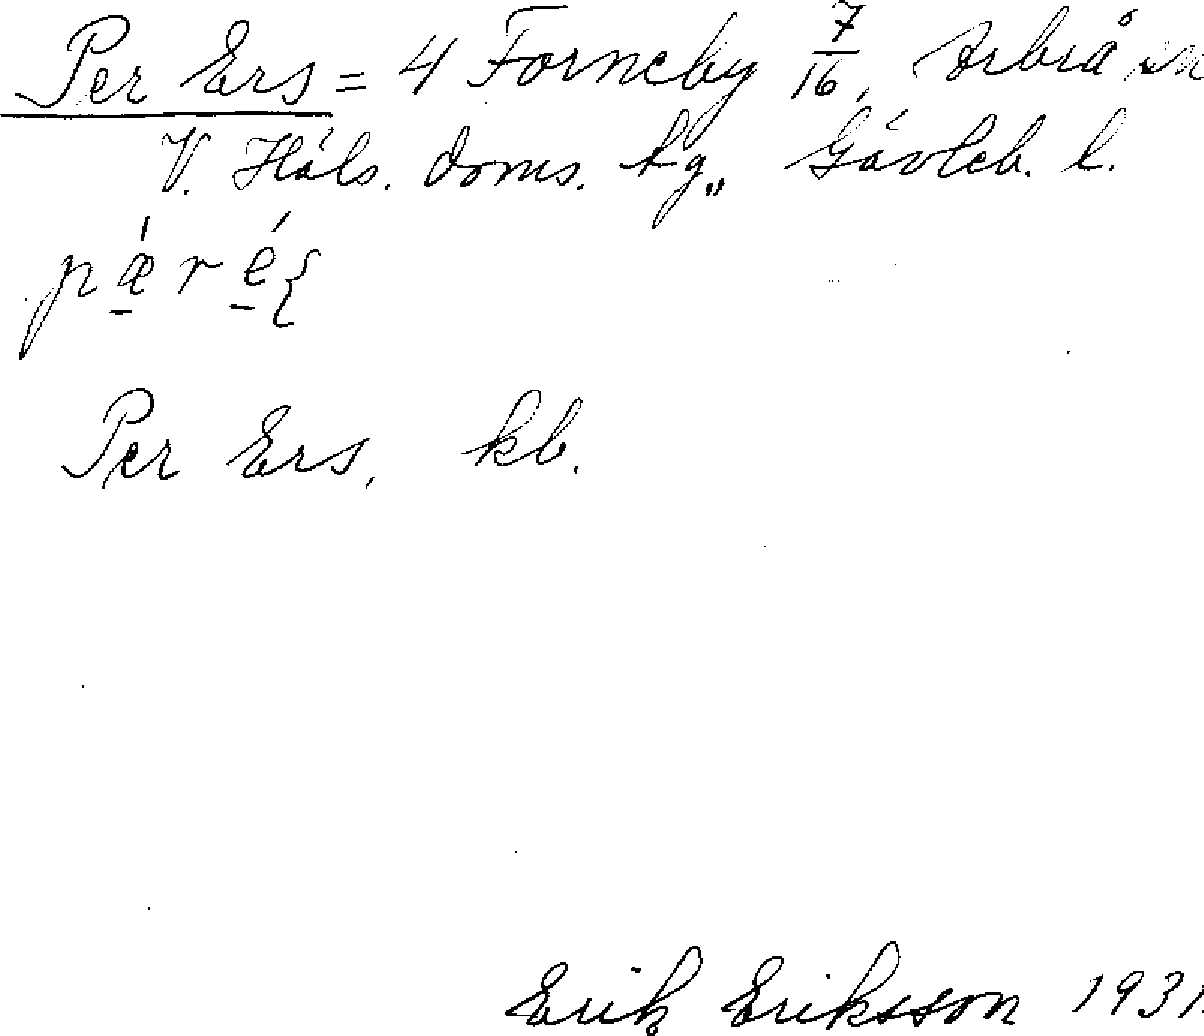 Per Ers = 4 Forneby 7/16, Arbrå sn
V. Häls. doms. hg,, Gävleb. l.
pǽ̱ré̱ʃ
Per Ers, kb.
Erik Eriksson 1931